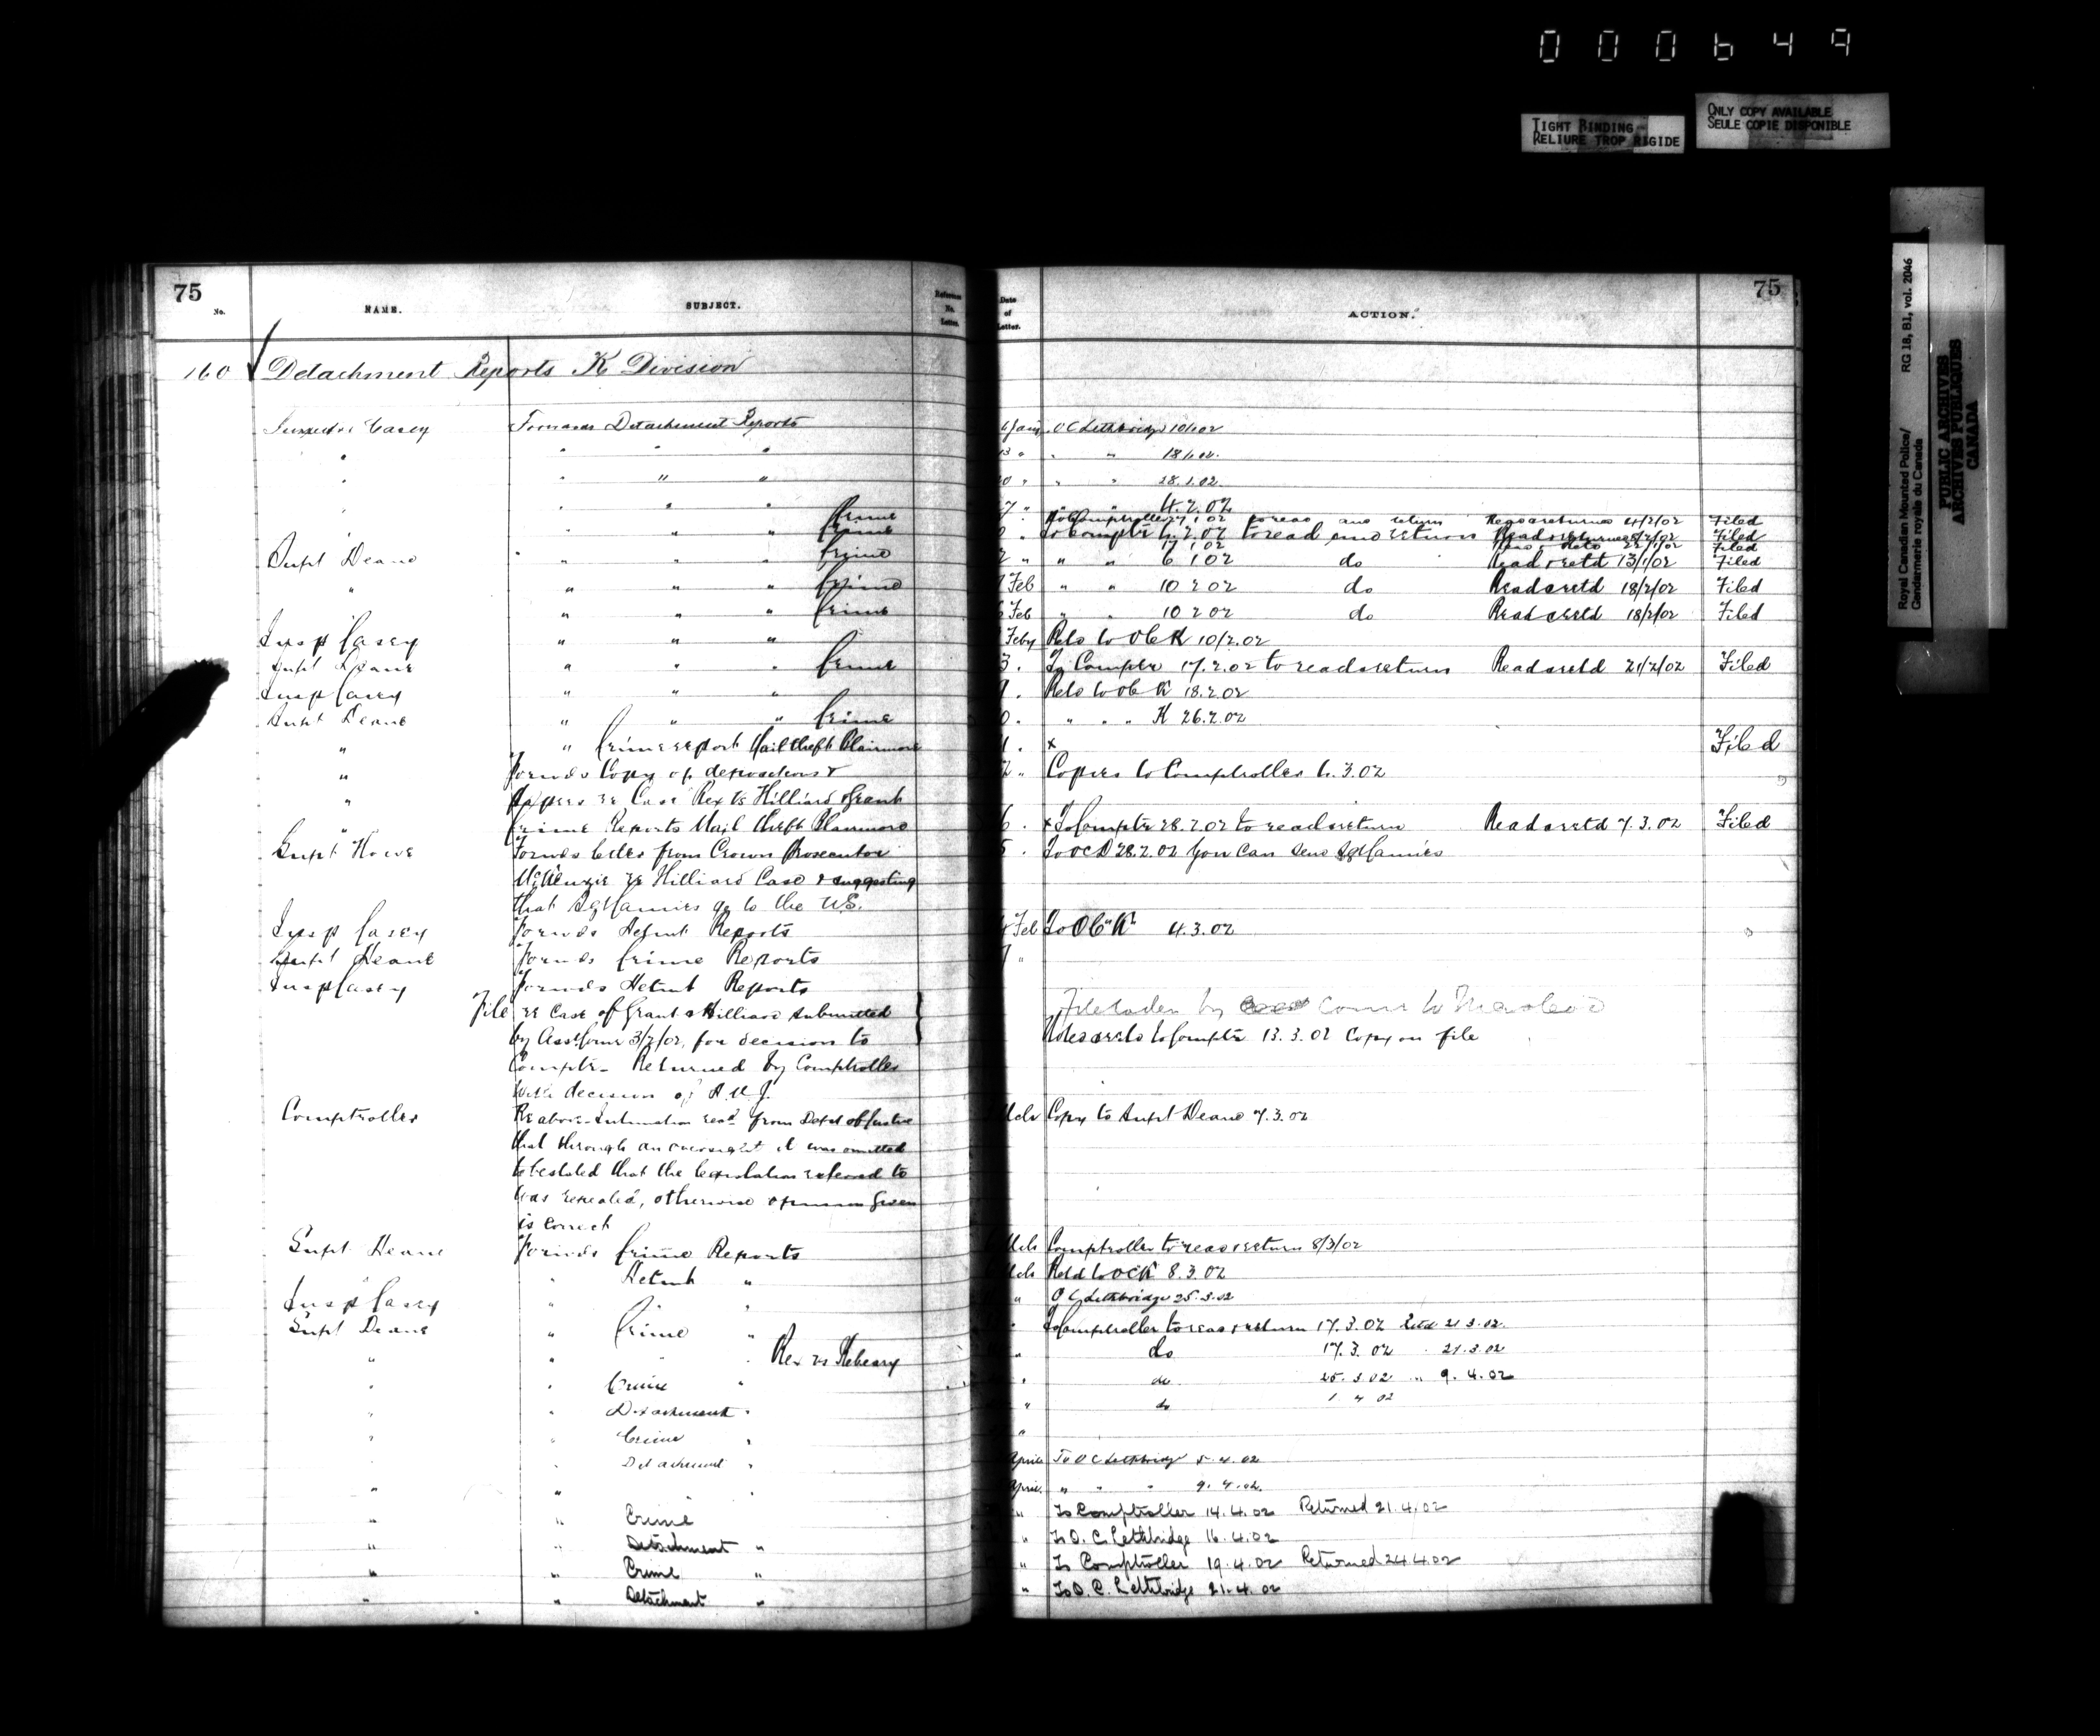 000649
TIGHT BINDING
RELIURE TROP RIGIDE
ONLY COPY AVAILABLE
SEULE COPIE DISPONIBLE
Royal Canadian Mounted Police/ RG 18, B1, vol. 2046
Gendarmerie royale du Canada
PUBLIC ARCHIVES
ARCHIVES PUBLIQUES
CANADA
75
No. NAME. SUBJECT. Reference No. Letter.
160 Detachment Reports K Division
Inspector Casey Forwards Detachment Reports
" " " "
" " " "
" " " " Crime
" " Crime
Supt Deane " " " Crime
" " " " Crime
" " " Crime
Insp Casey " " "
Supt Deane " " " Crime
Insp Casey " " "
Supt Deane " " " Crime
" " Crime report Mail theft Blairmore
" Forwds Copy of depositions &
" papers re Case Rex vs Hilliard & Grant
" Crime Reports Mail theft Blairmore
Supt Howe Forwds letter from Crown Prosecutor
McKenzie re Hilliard Case & suggesting
that Sgt Camies go to the U.S.
Insp Casey Forwds Detmt Reports
Supt Deane Forwds Crime Reports
Insp Casey Forwds Detmt Reports
File re Case of Grant & Hilliard submitted
by Asst Comr 3/2/02, for decision to
Comptr. Returned by Comptroller
with decision of
Comptroller Re above. Intimation recd from Dept of Justice
that through an oversight it was omitted
to be stated that the legislation referred to
was repealed, otherwise opinion given
is correct
Supt Deane Forwds Crime Reports
" Detmt "
Insp Casey " "
Supt Deane " Crime "
" " " Rex vs Kebeary
" " Crime "
" " Detachment "
" " Crime "
" Detachment "
" "
" " Crime
" " Detachment "
" " Crime "
" " Detachment "
Date of Letter. ACTION. 75
Jan O C Lethbridge 10/1/02
" " " 18.1.02.
" " " 28.1.02
" " " 4.2.02
To Comptroller 27.1.02 to read and return Read & returned 4/2/02 Filed
To Comptr 4.2.02 to read and return Read & returned Filed
17.1.02 22/1/02 Filed
" " " 6 1 02 do Read & retd 13/1/02 Filed
Feb " " 10 2 02 do Read & retd 18/2/02 Filed
Feb " " 10 2 02 do Read & retd 18/2/02 Filed
Feby Retd to OC K 10/2.02
3. To Comptr 17.2.02 to read & return Read & retd 21/2/02 Filed
Retd to OC K 18.2.02
" " " K 26.2.02
x Filed
" Copies to Comptroller 6.3.02
x To Comptr 28.2.02 to read & return Read & retd 7.3.02 Filed
To OC D 28.2.02 You can send Sgt Camies
Feb To OC "K" 4.3.02
"
File taken by Comr to Macleod
Notes & retd to Comptr 13.3.02 Copy on file
Mch Copy to Supt Deane 7.3.02
Mch Comptroller to read & return 8/3/02
Mch Retd to OC K 8.3.02
" O C Lethbridge 25.3.02
" To Comptroller to read & return 17.3.02 Retd 21.3.02.
" do 17.3.02 " 21.3.02
" do 25.3.02 " 9.4.02
" do 1 4 02
"
April To O C Lethbridge 5.4.02
April " " " 9.4.02.
" To Comptroller 14.4.02 Returned 21.4.02
" To O. C. Lethbridge 16.4.02
" To Comptroller 19.4.02 Returned 24.4.02
" To O. C. Lethbridge 21.4.02